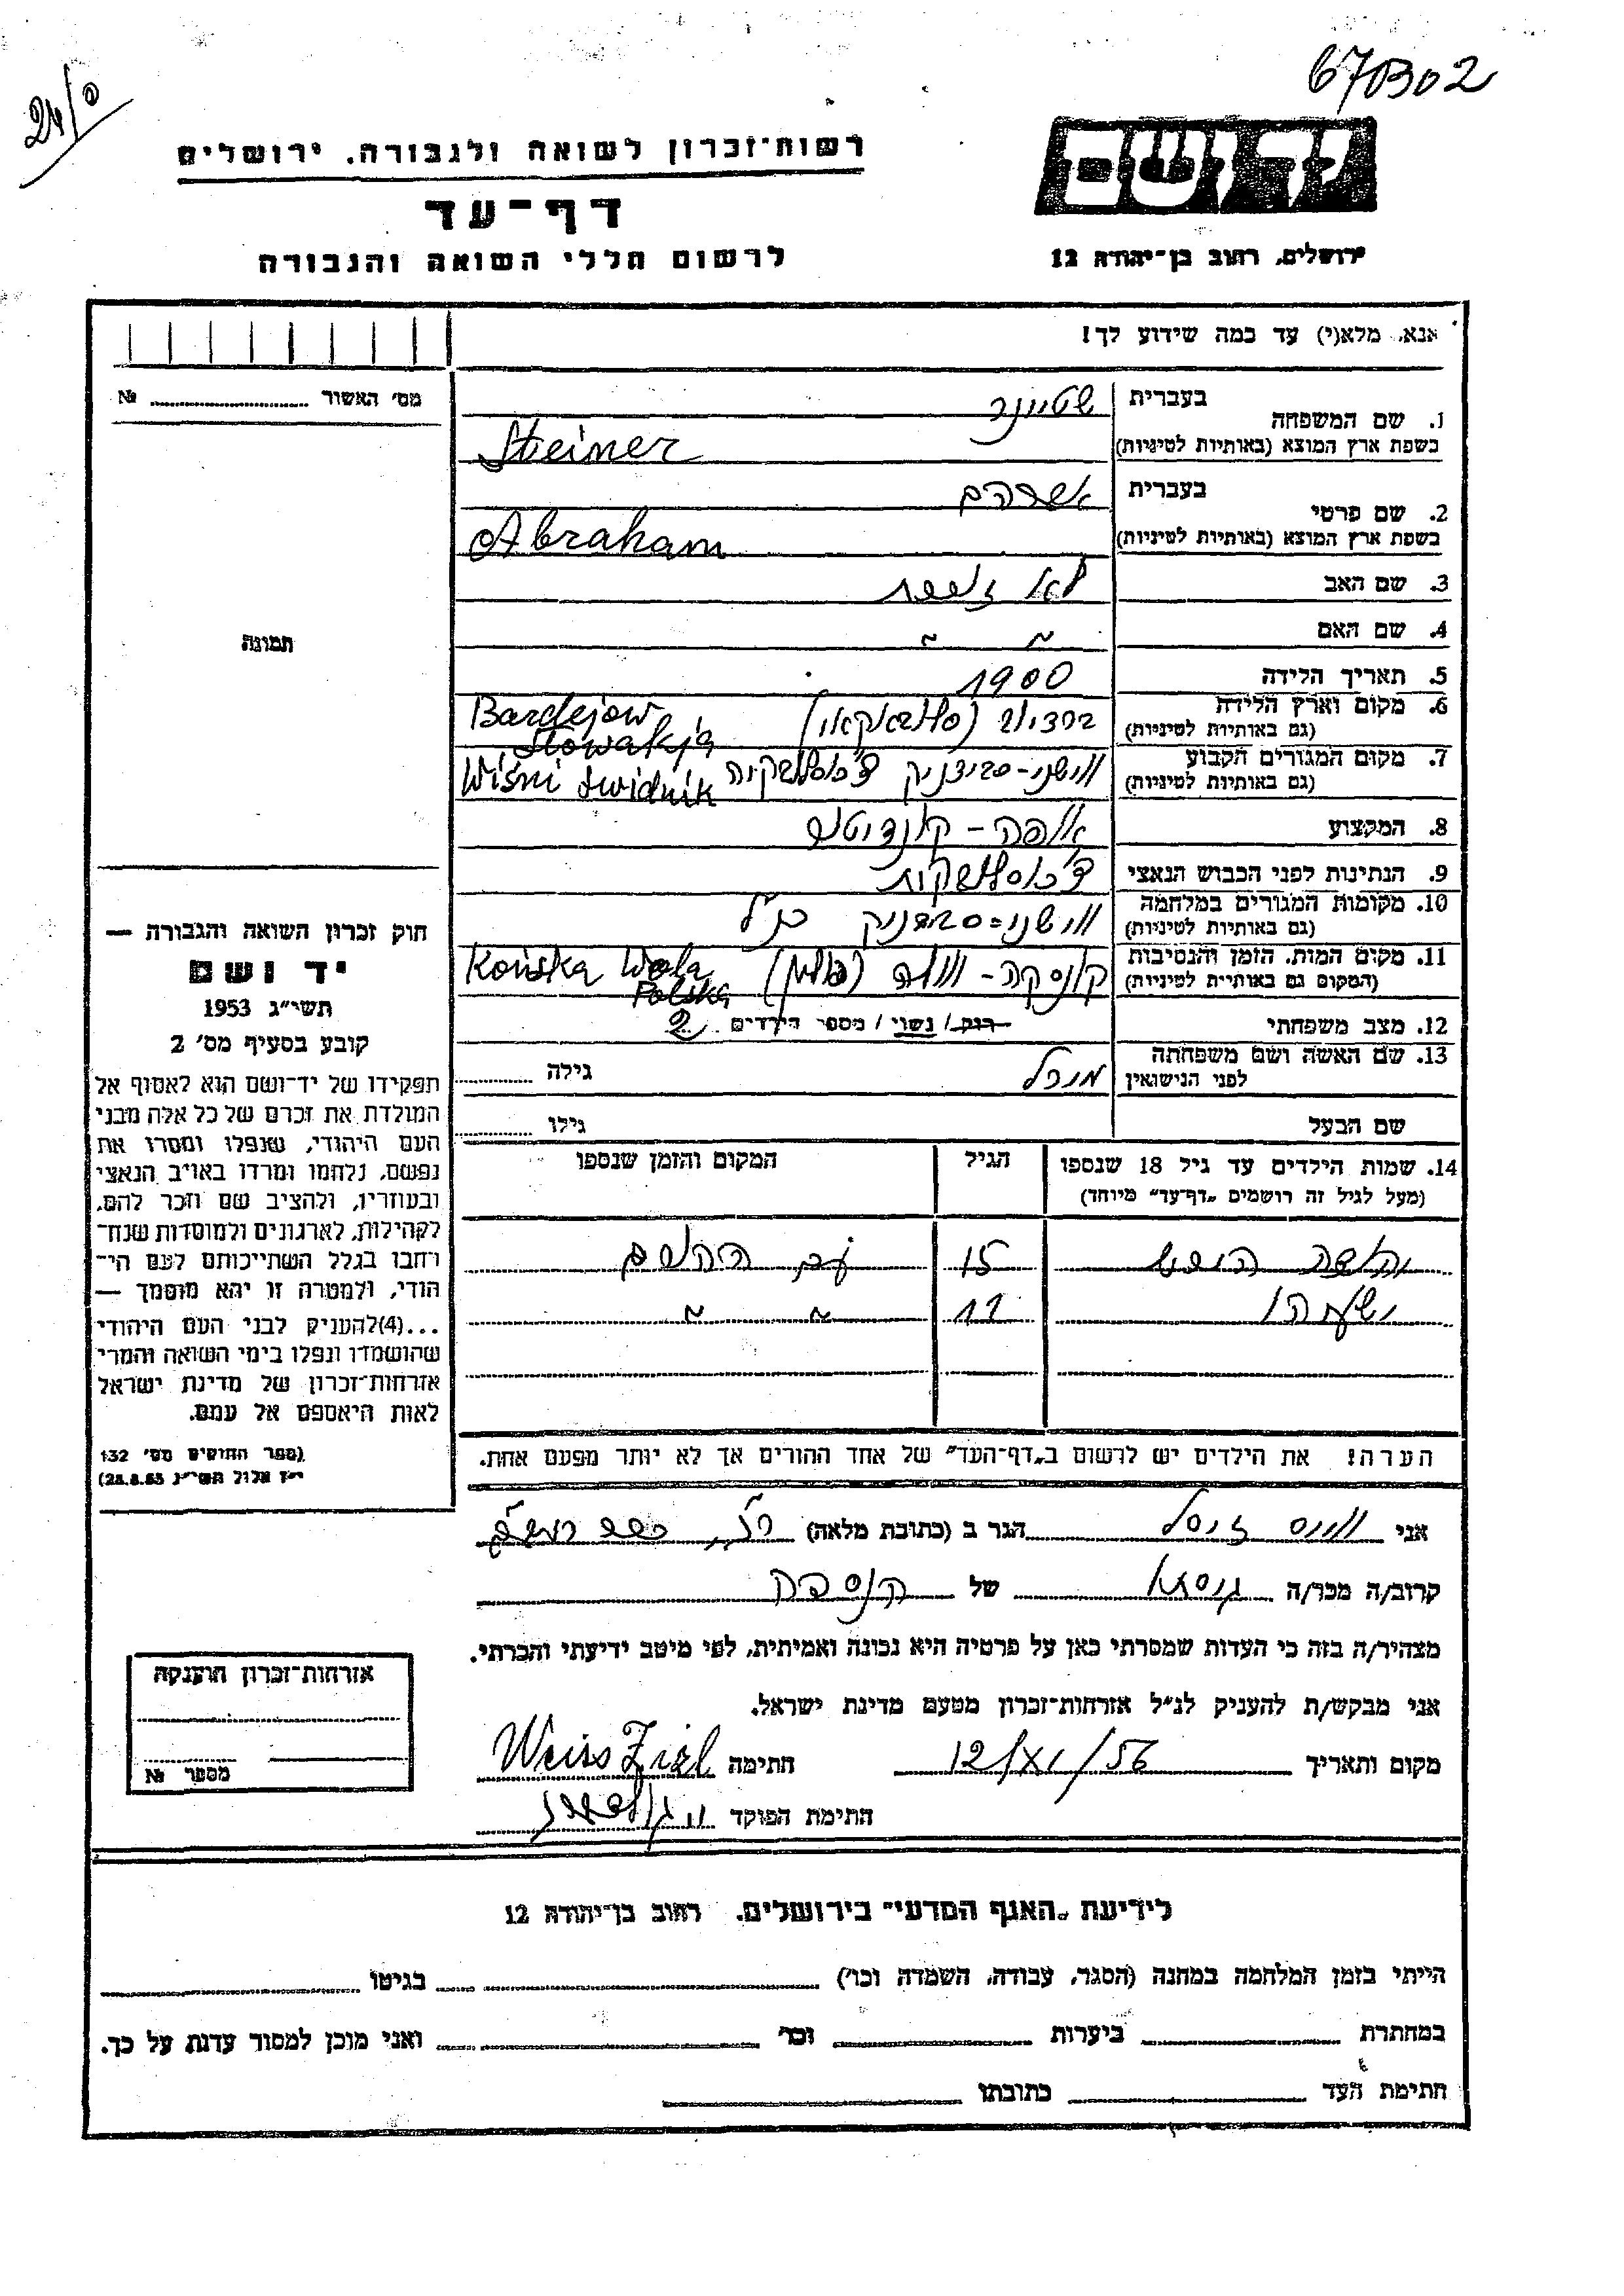 670302
24/0
רשות־זכרון לשואה ולגבורה, ירושלים
דף־עד
לרשום חללי השואה והגבורה
יד ושם
ירושלים, רחוב בן־יהודה 12
אנא, מלא(י) עד כמה שידוע לך!
מס' האשור № 
1. שם המשפחה
בעברית שטיינר
בשפת ארץ המוצא (באותיות לטיניות) Steiner
2. שם פרטי
בעברית אברהם
בשפת ארץ המוצא (באותיות לטיניות) Abraham
3. שם האב לא זוכר
4. שם האם " "
5. תאריך הלידה 1900
6. מקום וארץ הלידה
(גם באותיות לטיניות) Bardejow
Słowakja
7. מקום המגורים הקבוע
(גם באותיות לטיניות) Wiśni Świdnik
8. המקצוע אופה - קונדיטור
9. הנתינות לפני הכבוש הנאצי
10. מקומות המגורים במלחמה
(גם באותיות לטיניות) כנ"ל
11. מקום המות, הזמן והנסיבות
(המקום גם באותיות לטיניות) קונסקה - וולה (פולין) Końska Wola
Polska
12. מצב משפחתי רווק / נשוי / מספר הילדים 2
13. שם האשה ושם משפחתה
לפני הנישואין גילה
שם הבעל גילו
14. שמות הילדים עד גיל 18 שנספו
(מעל לגיל זה רושמים „דף־עד" מיוחד)
הגיל
המקום והזמן שנספו
15 עם ההורים
11 " "
הערה! את הילדים יש לרשום ב„דף־העד" של אחד ההורים אך לא יותר מפעם אחת.
תמונה
חוק זכרון השואה והגבורה —
יד ושם
תשי״ג 1953
קובע בסעיף מס' 2
תפקידו של יד־ושם הוא לאסוף אל
המולדת את זכרם של כל אלה מבני
העם היהודי, שנפלו ומסרו את
נפשם, נלחמו ומרדו באויב הנאצי
ובעוזריו, ולהציב שם וזכר להם,
לקהילות, לארגונים ולמוסדות שנח־
רבו בגלל השתייכותם לעם הי־
הודי, ולמטרה זו יהא מוסמך —
...(4)להעניק לבני העם היהודי
שהושמדו ונפלו בימי השואה והמרי
אזרחות־זכרון של מדינת ישראל
לאות היאספם אל עמם.
(ספר החוקים מס' 132
י״ז אלול תשי״ג 28.8.53)
אני וויס זיסל הגר ב (כתובת מלאה)
קרוב/ה מכר/ה גיסו של הנספה
מצהיר/ה בזה כי העדות שמסרתי כאן על פרטיה היא נכונה ואמיתית, לפי מיטב ידיעתי והכרתי.
אני מבקש/ת להעניק לנ״ל אזרחות־זכרון מטעם מדינת ישראל.
מקום ותאריך 12/XI/56 חתימה Weiss Zisl
חתימת הפוקד
אזרחות־זכרון הוענקה
מספר №
לידיעת „האגף המדעי" בירושלים, רחוב בן־יהודה 12
הייתי בזמן המלחמה במחנה (הסגר, עבודה, השמדה וכו') בגיטו
במחתרת ביערות וכו' ואני מוכן למסור עדות על כך.
חתימת העד כתובתו